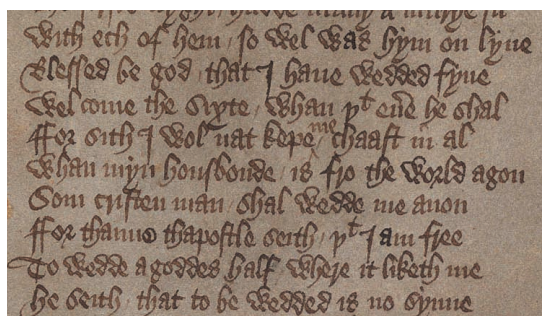 With ech of hem / so wel was hym on lyue
Blessed be god / that I haue wedded fyue
Wel come the sixte / whan þt euere he shal
Ffor sith I wol nat kepe me chaast in al
Whan myn housbonde / is fro the world agon
Som cristen man / shal wedde me anon
Ffor thanne thapostle seith / þt I am free
To wedde a goddes half / where it liketh me
he seith / that to be wedded is no synne